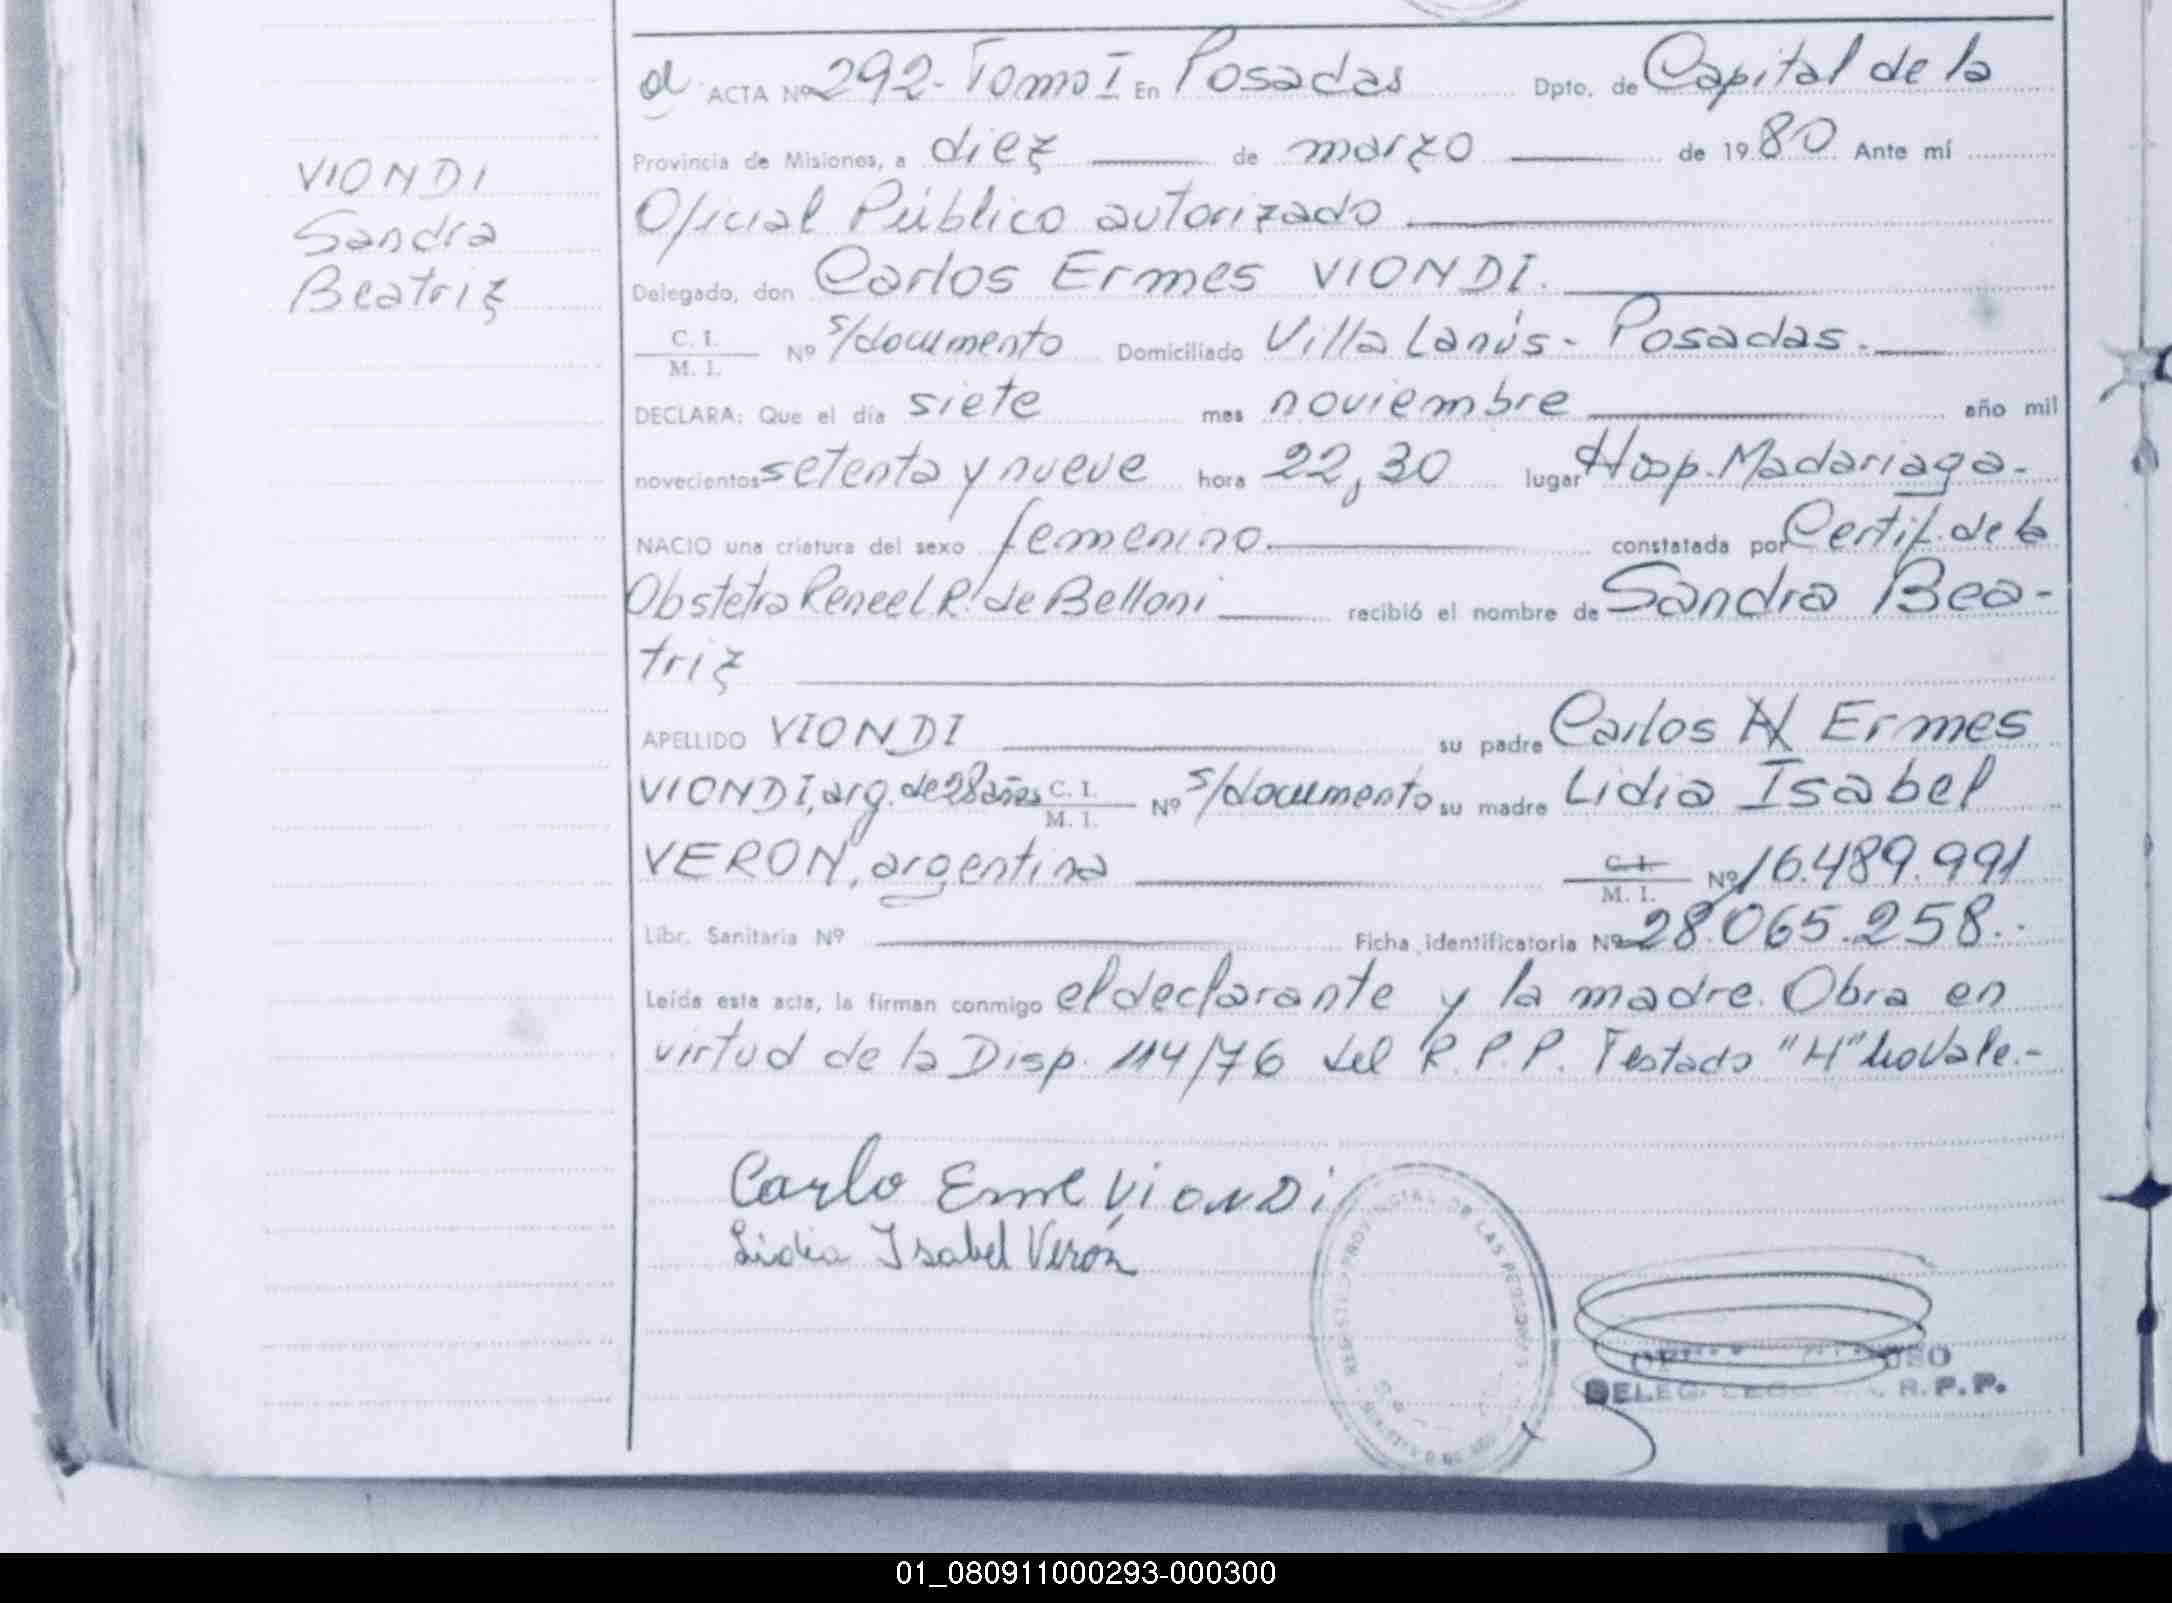 VIONDI
Sandra
Beatriz
a ACTA Nº 292- Tomo I En Posadas Dpto. de Capital de la
Provincia de Misiones, a diez de marzo de 1980 Ante mí
Oficial Público autorizado
Delegado, don Carlos Ermes VIONDI.
C. I. M. I. Nº s/documento Domiciliado Villa Lanús - Posadas.
DECLARA: Que el día siete mes noviembre año mil
novecientos setenta y nueve hora 22,30 lugar Hosp. Madariaga-
NACIO una criatura del sexo femenino constatada por Certif. de la
Obstetra Reneel R. de Belloni recibió el nombre de Sandra Bea-
triz
APELLIDO VIONDI su padre Carlos H Ermes
VIONDI, arg. de 28 años C. I. M. I. Nº s/documento su madre Lidia Isabel
VERON, argentina C. I. M. I. Nº 16.489.991
Libr. Sanitaria Nº Ficha identificatoria Nº 28.065.258..
Leída esta acta, la firman conmigo el declarante y la madre. Obra en
virtud de la Disp. 114/76 del R.P.P. Testado "H" no Vale.-
Carlo Erme ViONDi
Lidia Isabel Verón
PROVINCIAL DE LAS PERSONAS
DELEG. R.P.P.
01_080911000293-000300